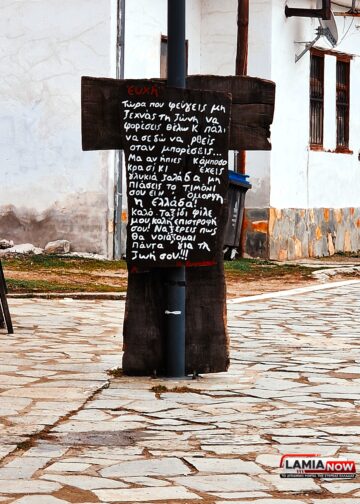 ΕΥΧΗ
Τώρα που φεύγεις μη
ξεχνάς τη ζώνη να
φορέσεις θέλω κ πάλι
να σε δώ να ρθείς
όταν μπορέσεις...
Μα αν ήπιες κάμποσο
κρασί κι έχεις
γλυκιά ζαλάδα μη
πιάσεις το τιμόνι
σου ειν όμορφη
η Ελλάδα!
καλό ταξίδι φίλε
μου, καλή επιστροφή
σου! Να ξέρεις πως
θα νοιάζομαι
Πάντα για τη
ζωή σου!!!
LAMIA NOW